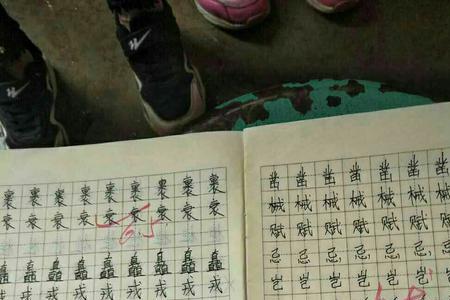 裹裹裹裹裹裹裹裹裹
衰衰衰衰衰衰衰衰衰
6.5
矗矗矗矗矗矗矗矗
戎戎戎戎戎戎戎戎
凿凿凿凿凿凿凿
械械械械械械械
赋赋赋赋赋赋赋
忌忌忌忌忌忌忌
岂岂岂岂岂岂岂